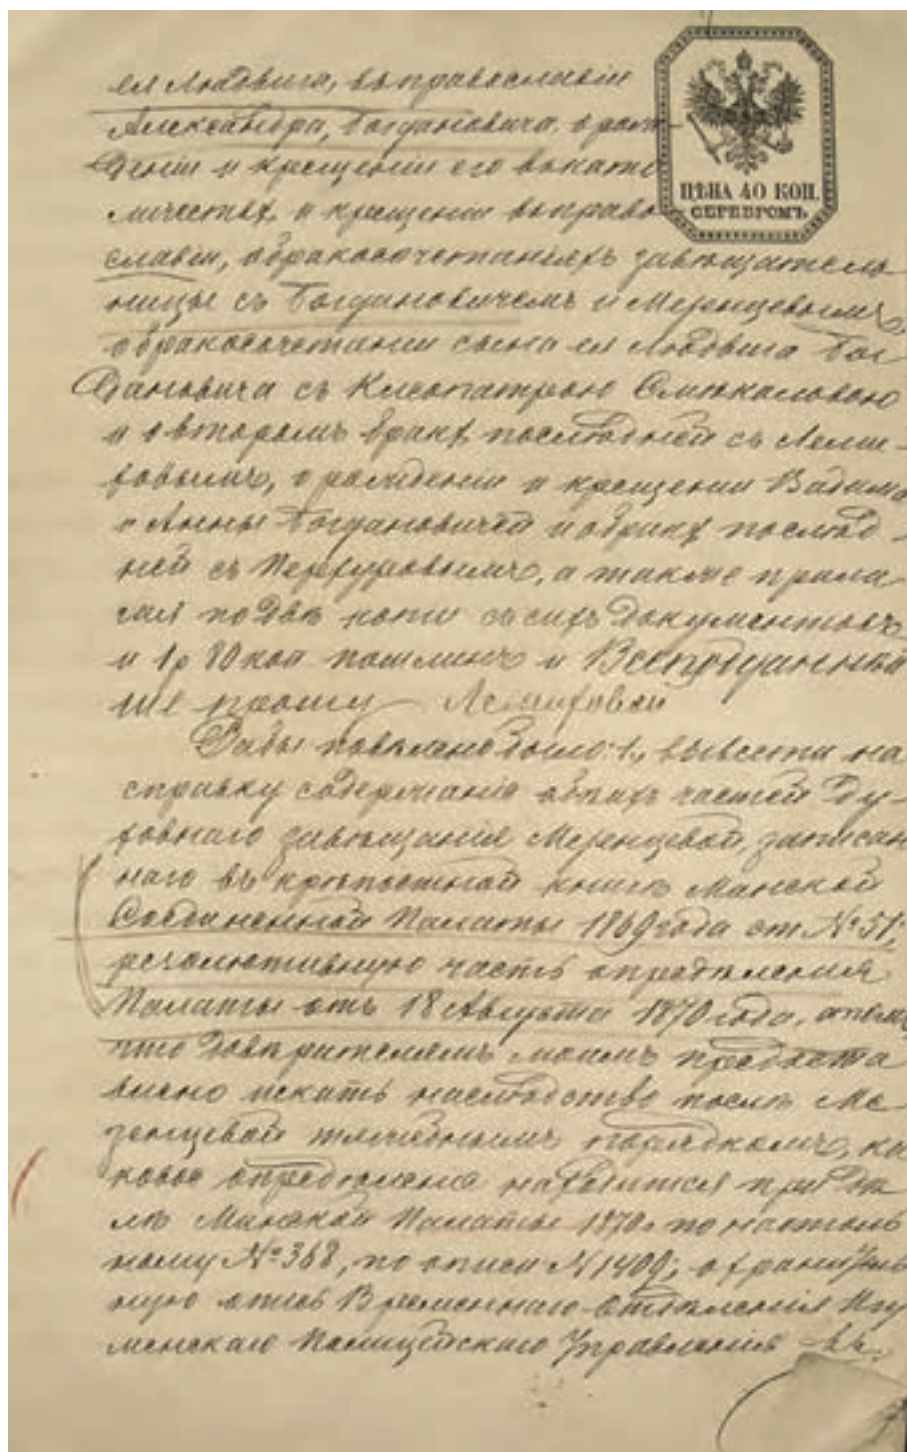 ея Людвига, въ православіи
Александра, Богдановича, о рож-
деніи и крещеніи его въ като
личествѣ, и крещеніи въ право
славіи, о бракосочетаніяхъ завѣщатель
ницы съ Богдановичемъ и Мезенцевымъ,
о бракосочетаніи сына ея Людвига Бог
дановича съ Клеопатрою
и о второмъ бракѣ послѣдней съ
о рожденіи и крещеніи Вадима
и Анны Богдановичей и о бракѣ послѣд-
ней съ а также прила
гая по двѣ копіи съ сихъ документовъ
и 1 р 80 коп пошлинъ и Всеподданнѣй
ше прошу
Дабы повелѣно было: 1., вывести на
справку содержаніе обѣихъ частей Ду-
ховнаго завѣщанія Мезенцевой, записан
наго въ крѣпостной книгѣ Минской
Соединенной Палаты 1869 года ст. № 51;
резолютивную часть опредѣленія
Палаты отъ 18 Августа 1870 года, о томъ,
что довѣрителямъ моимъ предоста
влено искать наслѣдство послѣ Ме
зенцевой тяжебнымъ порядкомъ, ка
ковое опредѣленіе находится при дѣ
лѣ Минской Палаты 1870 г. по настоль
ному № 368, по описи № 1409; охранитель
ную опись Временнаго Отдѣленія Игу
менскаго Полицейскаго Управленія
ЦѢНА 40 КОП.
СЕРЕБРОМЪ.